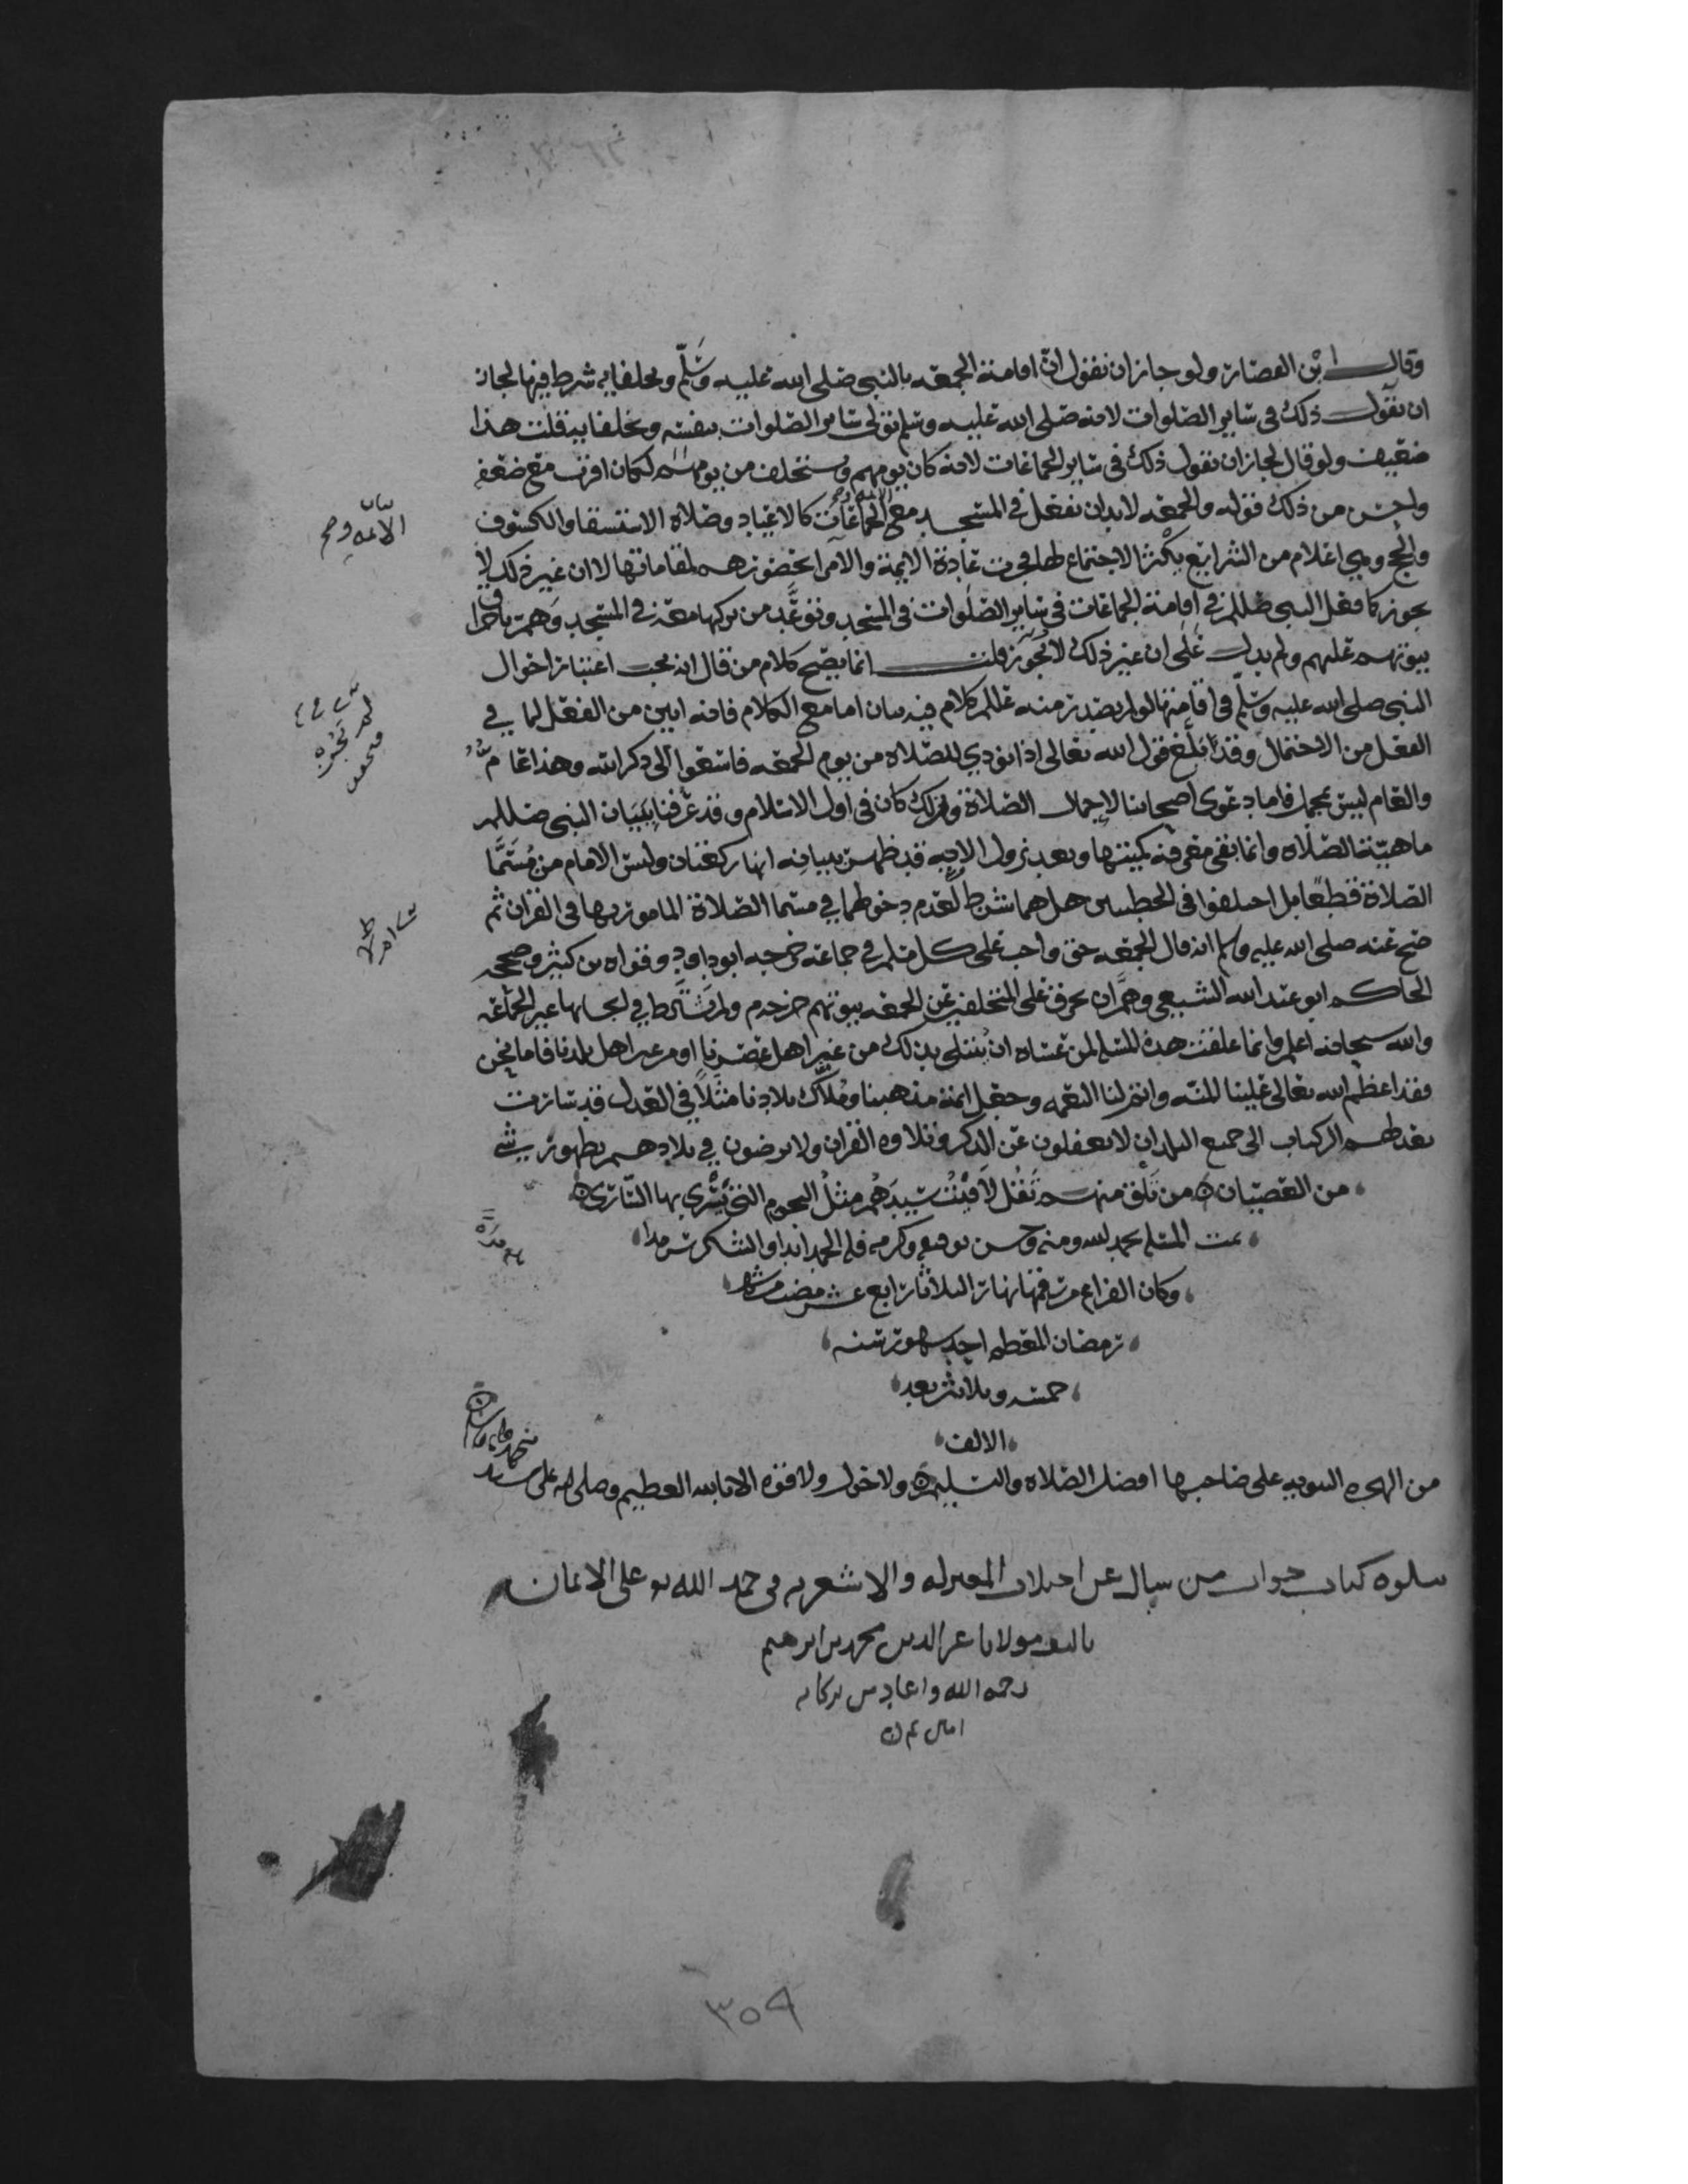 وقال ابن القصار ولو جاز ان نقول انّ اقامة الجمعه بالنبي صلى الله عليه وسَلّم وبخلفايه شرط فيها لجاز
ان نقول ذلك في ساير الصلوات لانه صلى الله عليه وسلم تولى ساير الصلوات بنفسه وبخلفايه قلت هذا
ضعيف ولو قال لجاز ان نقول ذلك في ساير الجماعات لانه كان يومهم ويستخلف من يومهم لكان اقرب مع ضعفه
واحسن من ذلك قوله والجمعه لابد ان تفعل في المسجد مع الجماعات كالاعياد وصلاة الاستسقا والكسوف
والحج وهي اعلام من الشرايع يكثر الاجتماع لها فجرت عادة الايمة والامرا بحضورهم لمقاماتها لا ان غير ذلك لا
يجوز كما فعل النبي صللم في اقامة الجماعات في ساير الصلوات في المسجد وتوعَّد من تركها معه في المسجد وَهمّ باحراق
بيوتهم عليهم ولم يدل عَلى ان غير ذلك لا يجوز قلت انما يصح كلام من قال انه يجب اعتبار احوال
النبي صلى الله عليه وسلّم في اقامتها لو لم يصدر منه عللم كلام فيه بيان اما مع الكلام فانه ابين من الفعل لما في
الفعل من الاحتمال وقد ابلغ قول الله تعالى اذا نودي للصلاة من يوم الجمعه فاسعوا الى ذكر الله وهذا عام
والعام ليس بمجمل فاما دعوى اصحابنا لاجمال الصلاة ولذلك كان في اول الاسلام وقد عرفنا ببَيَان النبي صللم
ماهيّة الصلاه وانما بقي معرفة كميتها وبعد نزول الايه قد ظهر بيانه انها ركعتان وليس الامام من مُسَمَّا
الصلاة قطعًا بل اختلفوا في الخطبتين هل هما شرط لعدم دخولهما في مسمّا الصلاة المامور بها في القران ثم
صح عنه صلى الله عليه وسلم انه قال الجمعه حق واجب على كل مسلم في جماعه خرجه ابو داود وقواه بن كثير وصححه
الحاكم ابو عبد الله الشيعي وهَمّ ان يحرق على المتخلفين عن الجمعه بيوتهم خرجه م ولم يَشترط في ايجابها غير الجمَاعه
والله سبحانه اعلم وانما علقت هذه المسئلة لمن عساه ان يُبتلى بذلك من غير اهل عصرنا او من غير اهل بلدنا فاما نحن
فقد اعظم الله تعالى علينا المنّه واتم لنا النعمه وجعل ايمة مذهبنا ومُلاّك بلادنا مثلاً في العدل قد سارت
بعدلهم الركاب الى جميع البلدان لا يغفلون عن الذكر وتلاوه القران ولا يرضون في بلادهم بظهور شي
من العصيان ه من تَلقَ منهم تَقُل لاقيتُ سَيدَهُم مثلُ النجوم التي يَسْري بها السّاري ه
تمت المسئله بحمد الله ومنه وحسن توفيقه وكرمه فله الحمد ابدا والشكر سرمدا
وكان الفراغ من رقمها نهار الثلاثا رابع عشر مضت من شهر
رمضان المعظم احد شهور سنه
خمسه وثلاثين بعد
الالف
من الهجره النبويه على صاحبها افضل الصلاه والتسليم ه ولا حول ولا قوه الا بالله العظيم وصلى الله على سيد
يتلوه كتاب جواب من سال عن اختلاف المعتزله والاشعريه في حمد الله تع على الايمان
تاليف مولانا عز الدين محمد بن ابرهيم
رحمه الله واعاد من بركاته
امين تم ن
٣٥٩